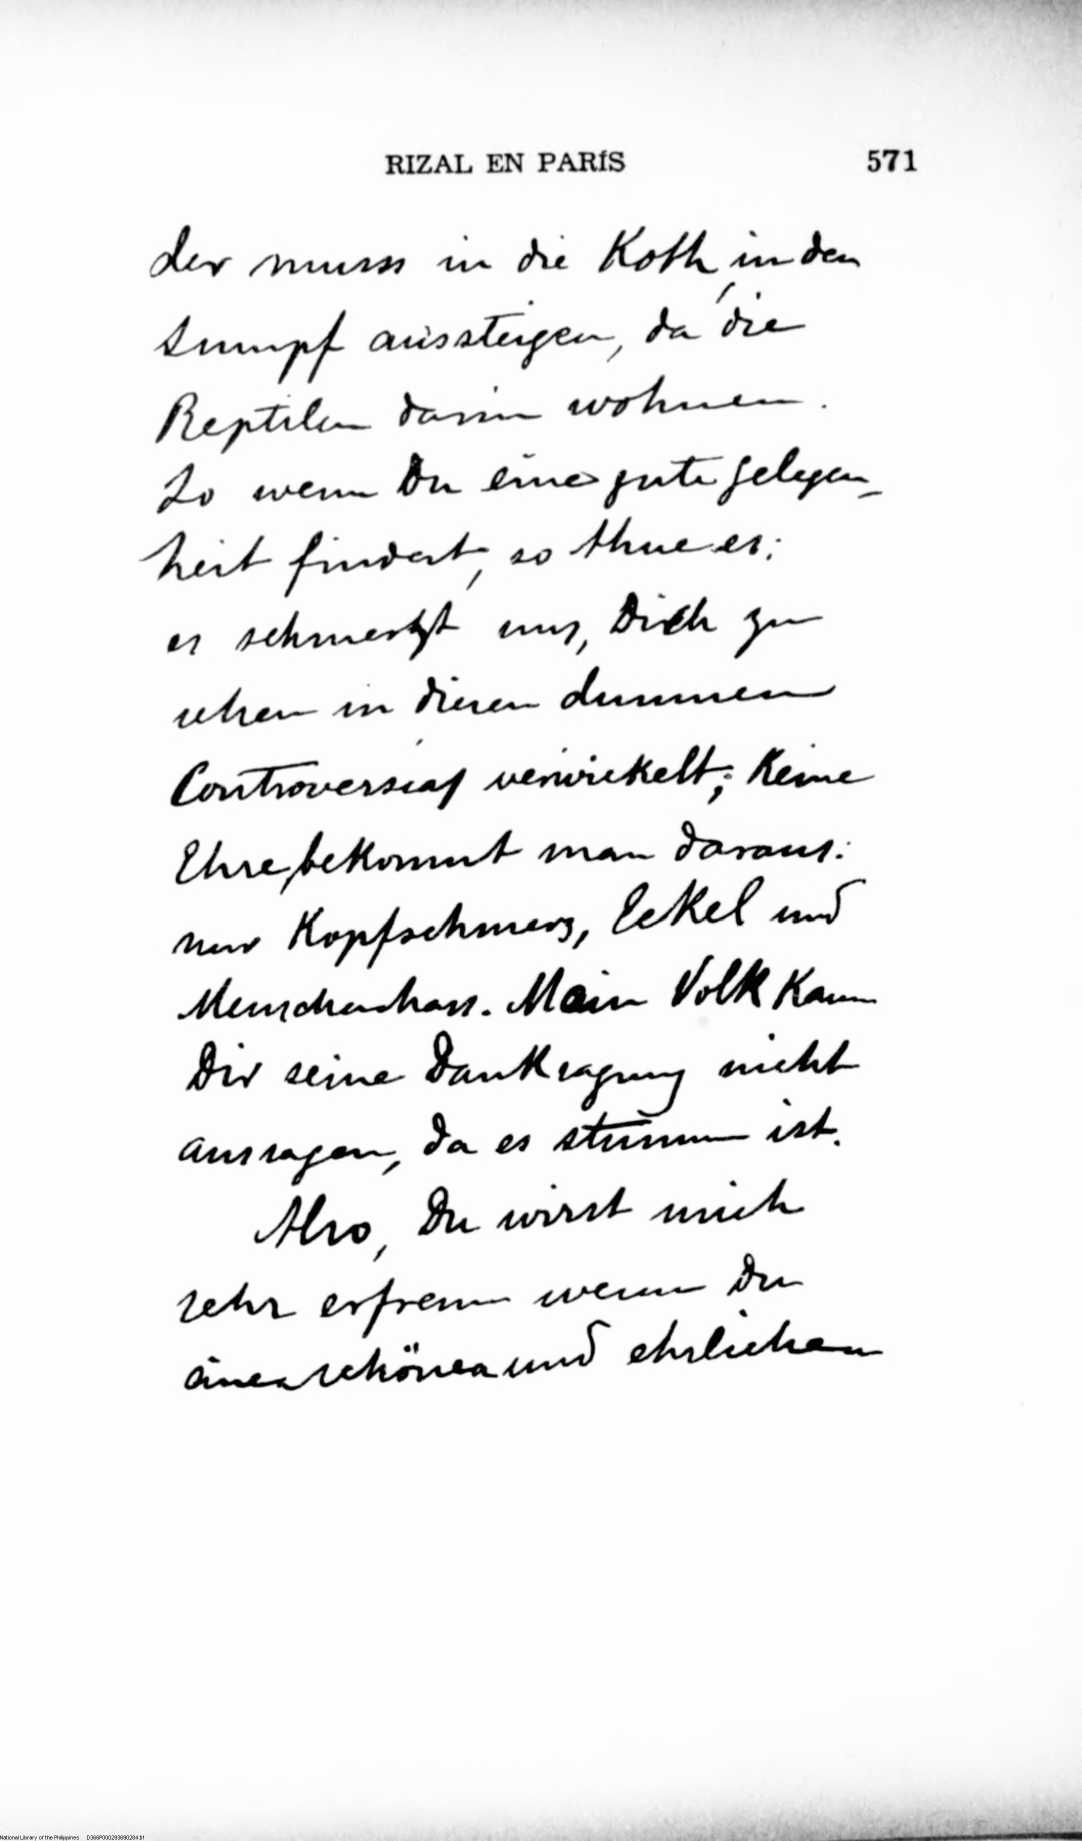 RIZAL EN PARÍS 571
der muss in die Koth, in den
Sumpf aussteigen, da die
Reptilen darin wohnen.
So wenn Du eine gute Gelegen-
heit findest, so thue es;
es schmertzt uns, Dich zu
sehen in diesen dummen
Controversias verwickelt; Keine
Ehre bekommt man daraus:
nur Kopfschmerz, Eckel und
Menschenhass. Mein Volk kann
Dir seine Danksagung nicht
aussagen, da es stumm ist.
Also, Du wirst mich
sehr erfreuen wenn Du
einen schönen und ehrlichen
National Library of the Philippines